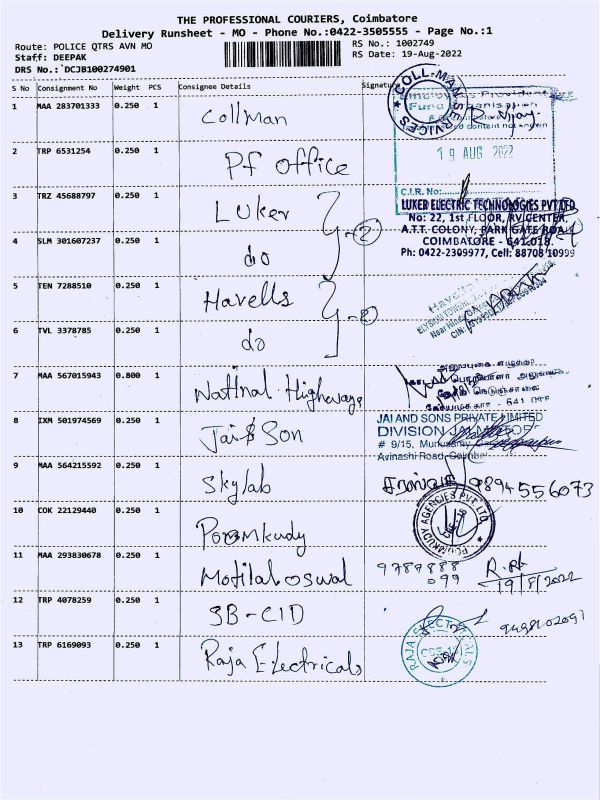 THE PROFESSIONAL COURIERS, Coimbatore
Delivery Runsheet - MO - Phone No.:0422-3505555 - Page No.:1
Route: POLICE QTRS AVN MO
Staff: DEEPAK
DRS No.: DCJB100274901
RS No.: 1002749
RS Date: 19-Aug-2022
S No Consignment No Weight PCS Consignee Details Signature
1 MAA 283701333 0.250 1 Collman
COLL-MAN SERVICES
R. Vijay
19 AUG 2022
2 TRP 6531254 0.250 1 Pf office
C.I.R. No:
3 TRZ 45688797 0.250 1 Luker
LUKER ELECTRIC TECHNOLOGIES PVT LTD
No: 22, 1st FLOOR, RV CENTER,
A.T.T. COLONY, PARK GATE ROAD
COIMBATORE - 641 018.
Ph: 0422-2309977, Cell: 88708 10999
4 SLM 301607237 0.250 1 do
2
5 TEN 7288510 0.250 1 Havells
Havells
6 TVL 3378785 0.250 1 do
7 MAA 567015943 0.800 1 National Highways
8 IXM 501974569 0.250 1 Jai & Son
JAI AND SONS PRIVATE LIMITED
DIVISION
# 9/15,
Avinashi Road,
9 MAA 564215592 0.250 1 Skylab
9894556073
10 COK 22129440 0.250 1 Poomkudy
POOMKUDY AGENCIES PVT LTD
11 MAA 293830678 0.250 1 Motilal oswal
9789888
099
19/8/2022
12 TRP 4078259 0.250 1 SB-CID
9498102091
13 TRP 6169093 0.250 1 Raja Electricals
RAJA ELECTRICALS